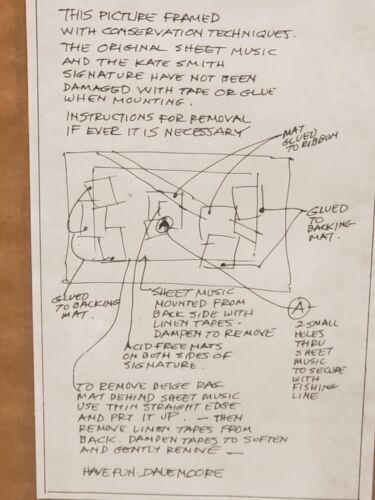 THIS PICTURE FRAMED
WITH CONSERVATION TECHNIQUES.
THE ORIGINAL SHEET MUSIC
AND THE KATE SMITH
SIGNATURE HAVE NOT BEEN
DAMAGED WITH TAPE OR GLUE
WHEN MOUNTING.
INSTRUCTIONS FOR REMOVAL
IF EVER IT IS NECESSARY
MAT
GLUED
TO RIBBON
GLUED
TO
BACKING
MAT.
A
GLUED
TO BACKING
MAT.
SHEET MUSIC
MOUNTED FROM
BACK SIDE WITH
LINEN TAPES -
DAMPEN TO REMOVE
ACID FREE MATS
ON BOTH SIDES OF
SIGNATURE.
A
2 SMALL
HOLES
THRU
SHEET
MUSIC
TO SECURE
WITH
FISHING
LINE
TO REMOVE BEIGE RAG
MAT BEHIND SHEET MUSIC
USE THIN STRAIGHT EDGE
AND PRY IT UP. — THEN
REMOVE LINEN TAPES FROM
BACK. DAMPEN TAPES TO SOFTEN
AND GENTLY REMOVE —
HAVE FUN. DAVE MOORE